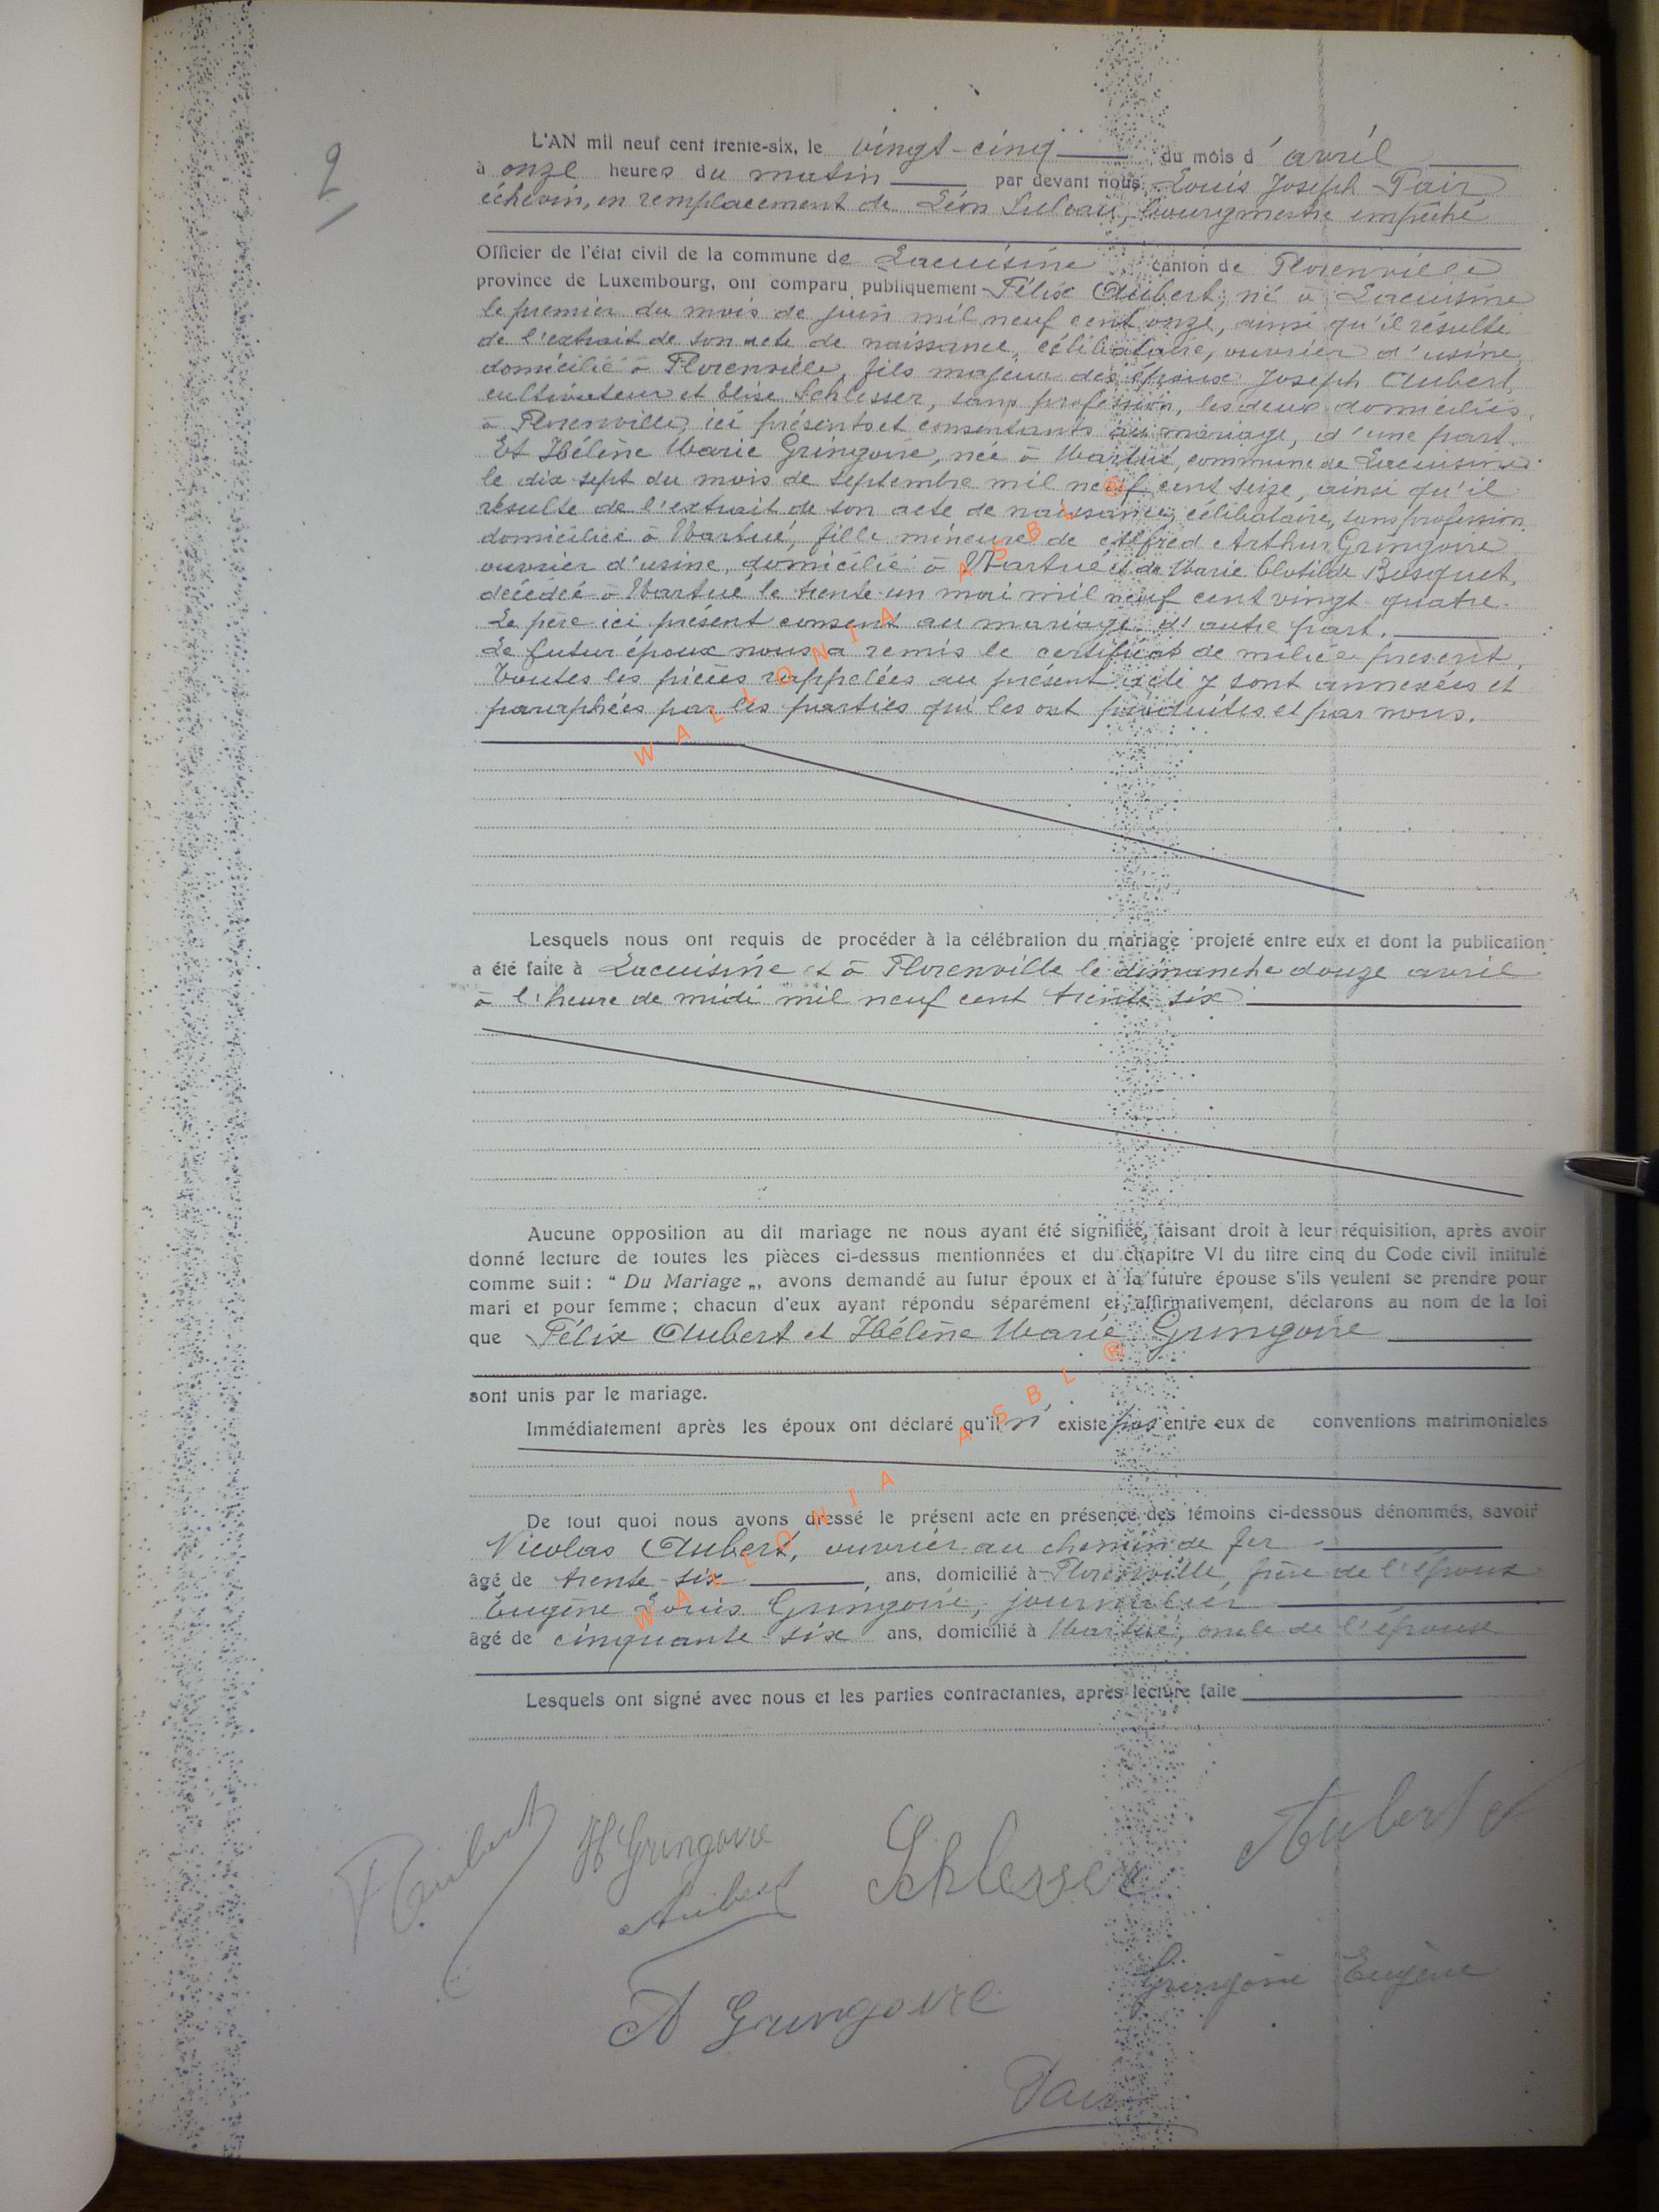 2
L'AN mil neuf cent trente-six, le vingt-cinq du mois d'avril
à onze heures du matin par devant nous, Louis Joseph Pair
échevin, en remplacement de Léon bourgmestre empêché
Officier de l'état civil de la commune de Lacuisine, canton de Florenville
province de Luxembourg, ont comparu publiquement Félix Aubert, né à Lacuisine
le premier du mois de juin mil neuf cent onze, ainsi qu'il résulte
de l'extrait de son acte de naissance, célibataire, ouvrier d'usine,
domicilié à Florenville, fils majeur des époux Joseph Aubert,
cultivateur et Elise Schlesser, sans profession, les deux domiciliés
à Florenville, ici présents et consentants au mariage, d'une part.
Et Hélène Marie Gringoire, née à Martué, commune de Lacuisine
le dix-sept du mois de septembre mil neuf cent seize, ainsi qu'il
résulte de l'extrait de son acte de naissance, célibataire, sans profession,
domiciliée à Martué, fille mineure de Alfred Arthur Gringoire
ouvrier d'usine, domicilié à Martué et de Marie Clotilde Bosquet,
décédée à Martué le trente-un mai mil neuf cent vingt-quatre.
Le père ici présent consent au mariage, d'autre part.
Le futur époux nous a remis le certificat de milice prescrit.
Toutes les pièces rappelées au présent acte y sont annexées et
paraphées par les parties qui les ont produites et par nous.
WALLONIA ASBL ®
Lesquels nous ont requis de procéder à la célébration du mariage projeté entre eux et dont la publication
a été faite à Lacuisine et à Florenville le dimanche douze avril
à l'heure de midi mil neuf cent trente six
Aucune opposition au dit mariage ne nous ayant été signifiée, faisant droit à leur réquisition, après avoir
donné lecture de toutes les pièces ci-dessus mentionnées et du chapitre VI du titre cinq du Code civil intitulé
comme suit : “ Du Mariage „, avons demandé au futur époux et à la future épouse s'ils veulent se prendre pour
mari et pour femme ; chacun d'eux ayant répondu séparément et affirmativement, déclarons au nom de la loi
que Félix Aubert et Hélène Marie Gringoire
sont unis par le mariage.
Immédiatement après les époux ont déclaré qu'il n'existe pas entre eux de conventions matrimoniales
WALLONIA ASBL ®
De tout quoi nous avons dressé le présent acte en présence des témoins ci-dessous dénommés, savoir
Nicolas Aubert, ouvrier au chemin de fer
âgé de trente-six ans, domicilié à Florenville, frère de l'époux
Eugène Louis Gringoire, journalier
âgé de cinquante-six ans, domicilié à Martué, oncle de l'épouse
Lesquels ont signé avec nous et les parties contractantes, après lecture faite
F Aubert H Gringoire Schlesser Aubert
Aubert
A Gringoire Gringoire Eugène
Pair